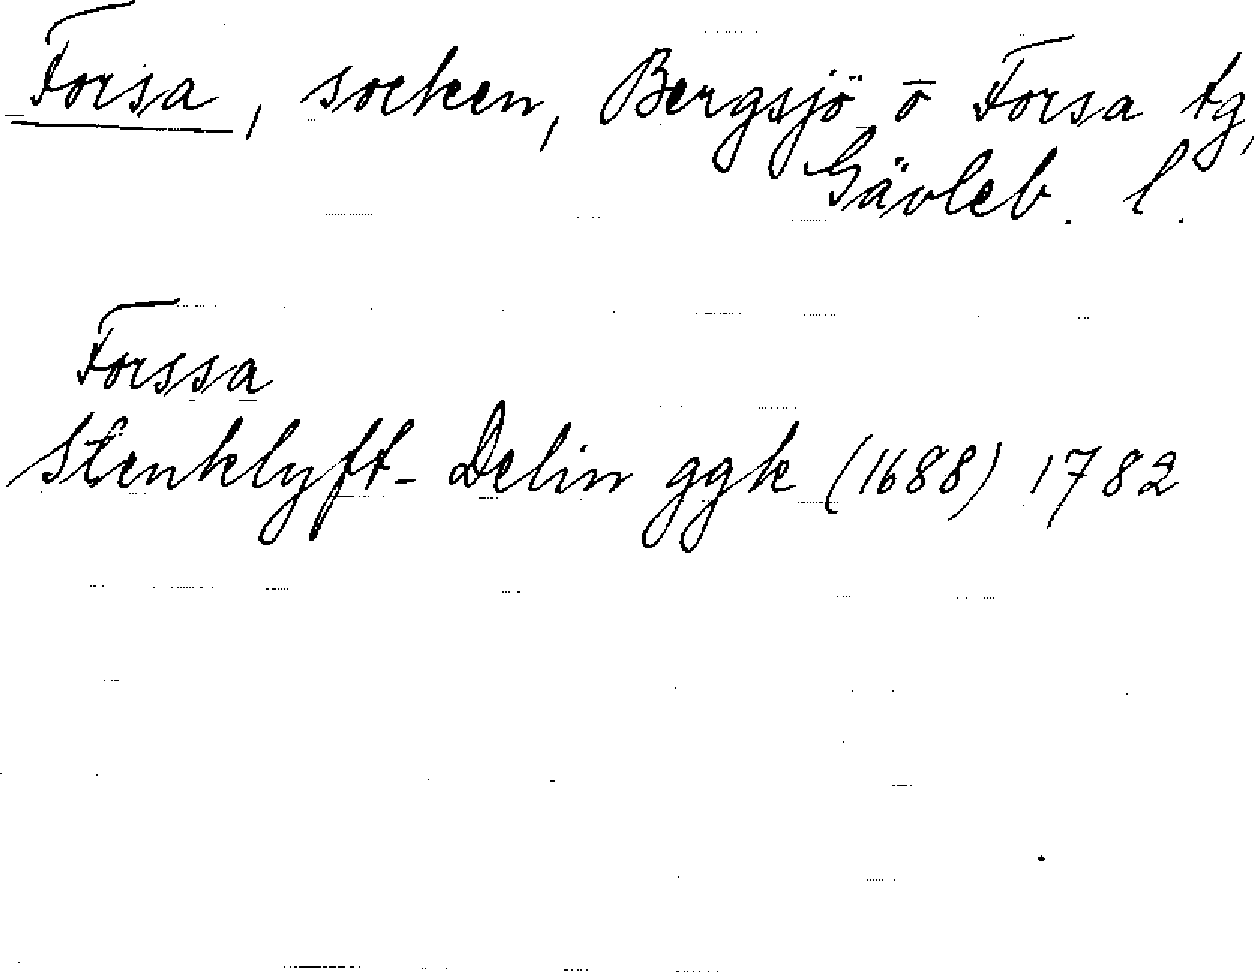 Forsa, socken, Bergsjö o Forsa tg,
Gävleb. l.
Forssa
Stenklyft- Delin ggk (1688) 1782